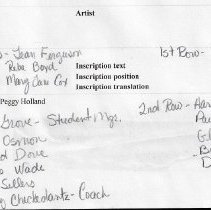 Artist
Jean Ferguson 1st Row-
Reba Boyd Inscription text
Mary Jane Cox Inscription position
Inscription translation
Peggy Holland
Grove - Student Mgr. 2nd Row - Aar
Osmon Pau
Dove
Wade
Sellers D
Chickdantz - Coach